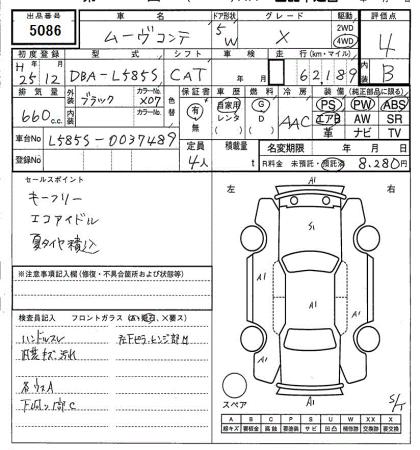 出品番号 車名 ドア形状 グレード 駆動 評価点
5086 ムーヴコンテ 5 W X 2WD 4WD 4
初度登録 型式 シフト 車検 走行(km・マイル) 内装 B
H 25年 12月 DBA-L585S CAT 年 月 62,189
排気量 外装 ブラック カラーNo. X07 色替 保証書 車歴 燃料 冷房 装備(純正部品に限る)
660cc 内装 カラーNo. 有・無 自家用 レンタ G D AAC PS PW ABS
エアB AW SR
革 ナビ TV
車台No L585S-0037489 定員 4人 積載量 t 名変期限 年 月 日
登録No R料金 未預託・預託済 8,280円
セールスポイント
キーフリー
エコアイドル
夏タイヤ積込
左 右
A1
S1
A1 A1 A1
A1
A1
※注意事項記入欄(修復・不具合箇所および状態等)
検査員記入 フロントガラス
ハンドルスレ
内装キズ汚れ
下回り一部C
スペア
S/T
A B C P S U W X XX
線キズ 要板金 腐蝕 要塗装 サビ 凹凸 補修跡 要交換 交換済